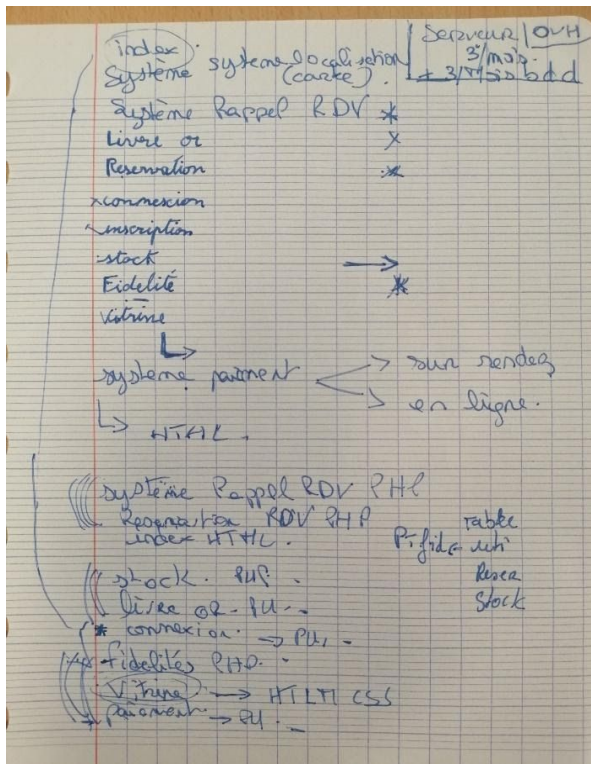 index.
Système système localisation
(carte).
Serveur / OVH
3/mois.
+ 3/mois bdd
Système Rappel RDV *
Livre or x
Reservation *
x connexion
inscription
stock →
Fidelité *
Vitrine
système paiment → sur rendez
→ en ligne.
↳ HTML.
système Rappel RDV PHP
RDV PHP
index HTML.
Table
Resea
Stock
stock. PHP.
livre OR. PH.
* connexion. → PH.
fidelités PHP.
Vitrine → HTLM CSS
paiment → PH.